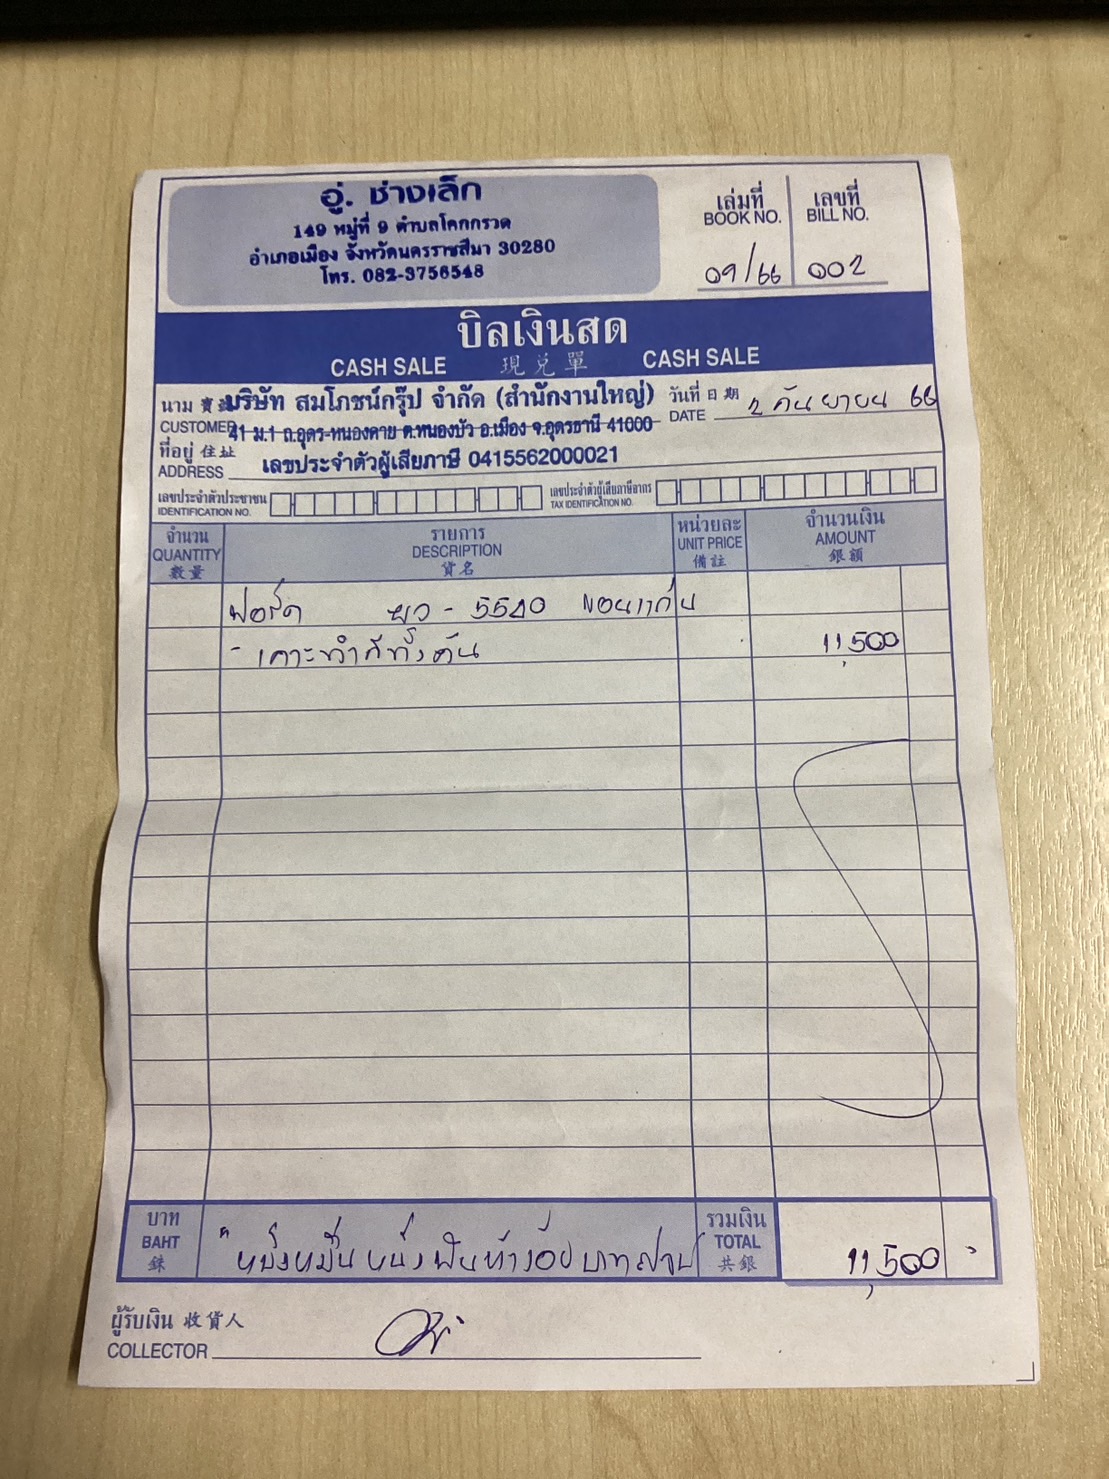 อู่. ช่างเล็ก
149 หมู่ที่ 9 ตำบลโคกกรวด
อำเภอเมือง จังหวัดนครราชสีมา 30280
โทร. 082-3756548
เล่มที่ เลขที่
BOOK NO. BILL NO.
09/66 002
บิลเงินสด
CASH SALE 現兑單 CASH SALE
นาม บริษัท สมโภชน์กรุ๊ป จำกัด (สำนักงานใหญ่) วันที่ 日期
CUSTOMER 41 ม.1 ถ.อุดร-หนองคาย ต.หนองบัว อ.เมือง จ.อุดรธานี 41000 DATE 2 กันยายน 66
ที่อยู่ 住址
ADDRESS เลขประจำตัวผู้เสียภาษี 0415562000021
เลขประจำตัวประชาชน เลขประจำตัวผู้เสียภาษีอากร
IDENTIFICATION NO. TAX IDENTIFICATION NO.
จำนวน รายการ หน่วยละ จำนวนเงิน
QUANTITY DESCRIPTION UNIT PRICE AMOUNT
數量 貨名 備註 銀額
ฟอร์ด ผว - 5540 ขอนแก่น
- เคาะทำสีทั้งคัน 11,500
บาท รวมเงิน
BAHT "หนึ่งหมื่นหนึ่งพันห้าร้อยบาทถ้วน TOTAL 11,500 -
銖 共銀
ผู้รับเงิน 收貨人
COLLECTOR